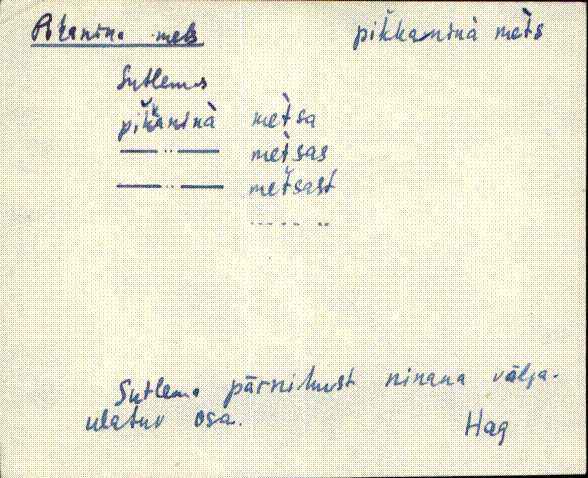 Pikanina mets pikkaninà mèts
Sutlemas
pikkaninà mètsa
— " — mètsas
— " — mètsast
Sutlema pärnikust ninana välja-
ulatuv osa. Hag